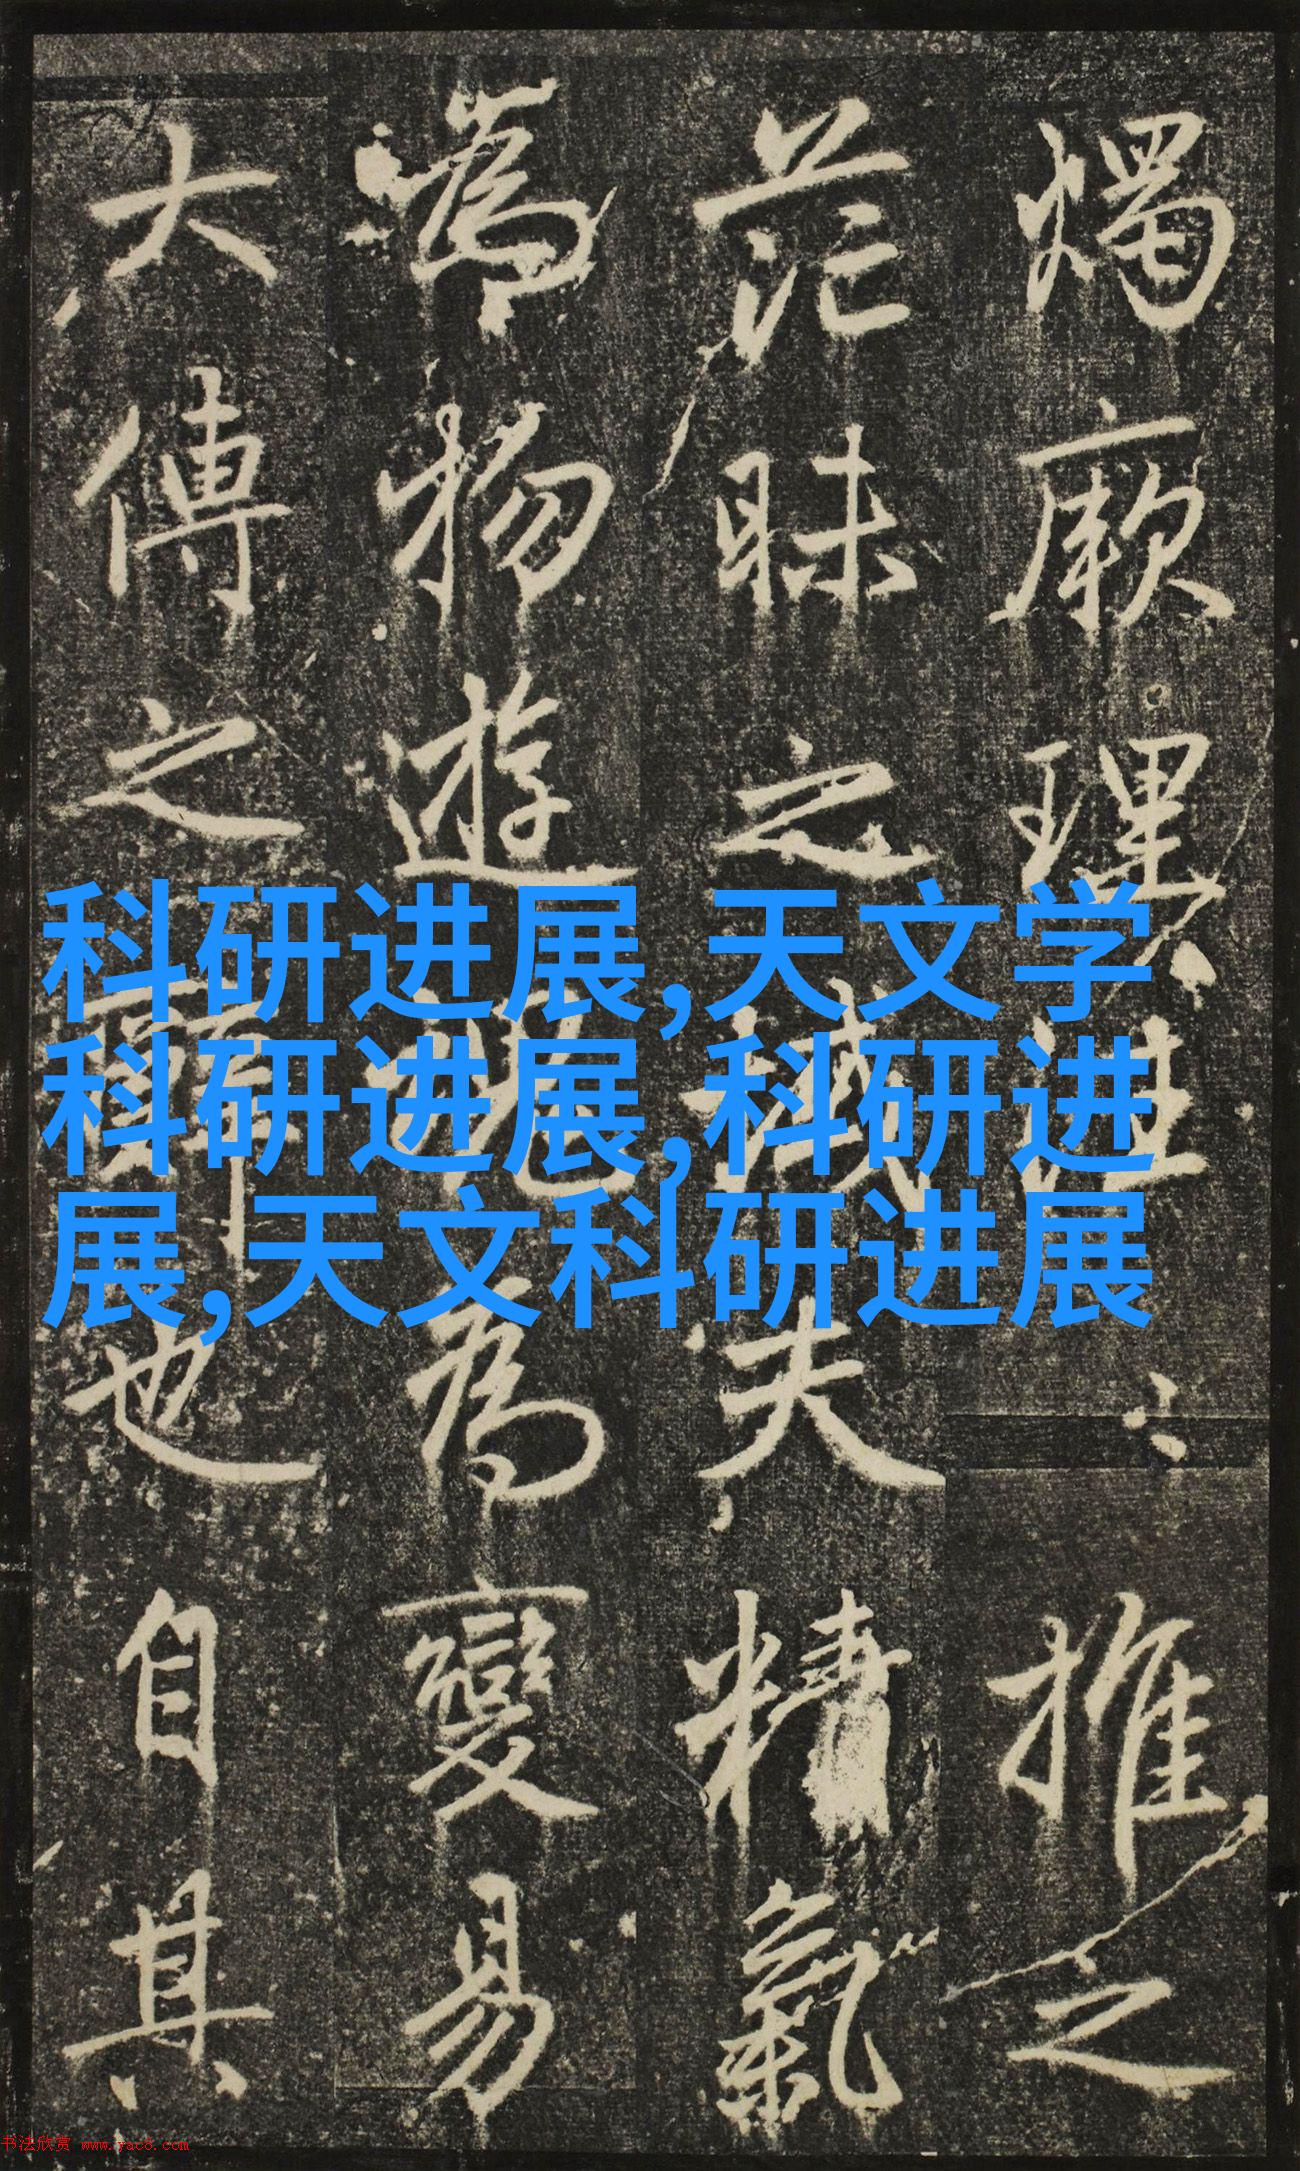 燭厥理其性推之
茫昧之域夫精氣
為物遊魂為變易
大傳之辭也自其
科研进展,天文学
科研进展,科研进
展,天文科研进展
书法欣赏 www.yac8.com